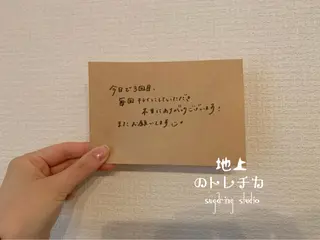 今日で3回目、
毎回キレイにしていただき
本当にありがとうございます!
またお願いします
地上
のトレチカ
sugaring studio